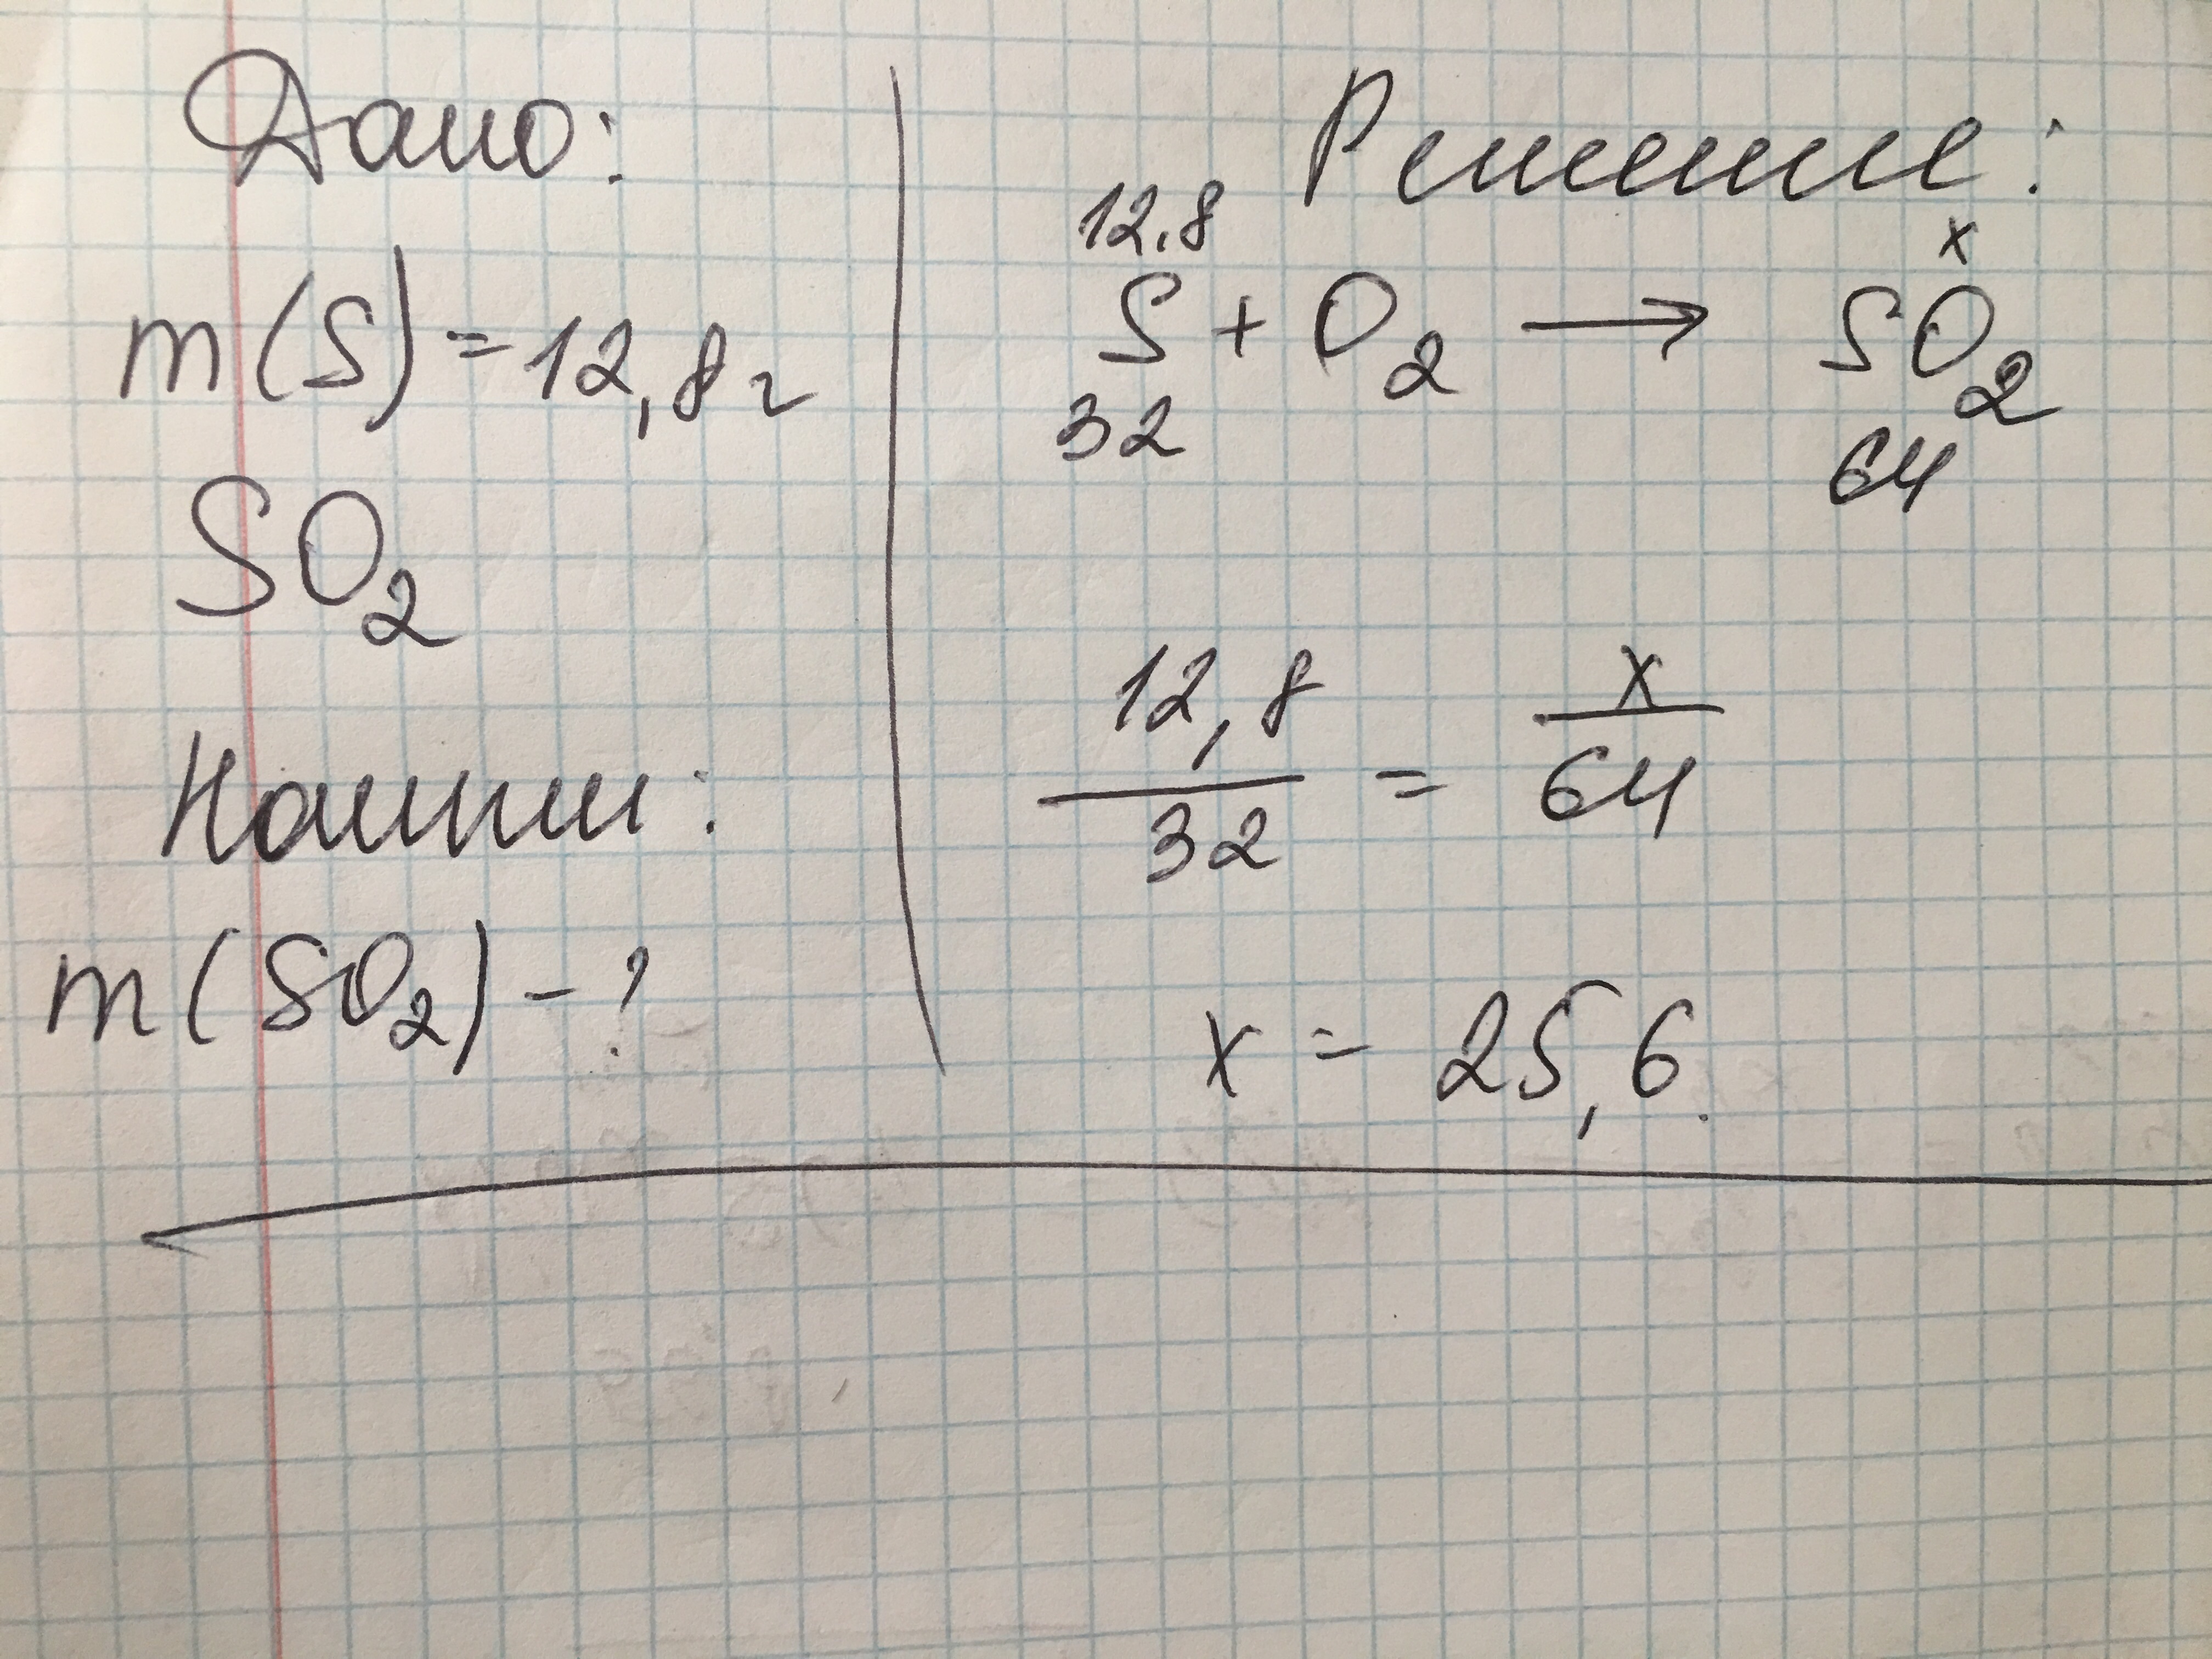 Дано:
m(S)=12,8г
SO₂
Найти:
m(SO₂)-?
Решение:
12,8 x
S + O₂ → SO₂
32 64
12,8/32 = x/64
x = 25,6.